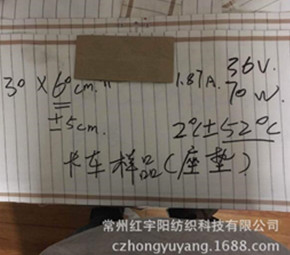 36V.
30 × 60cm. 1.87A. 70W.
±5cm. 2℃±52℃
卡车样品(座垫)
常州红宇阳纺织科技有限公司
czhongyuyang.1688.com